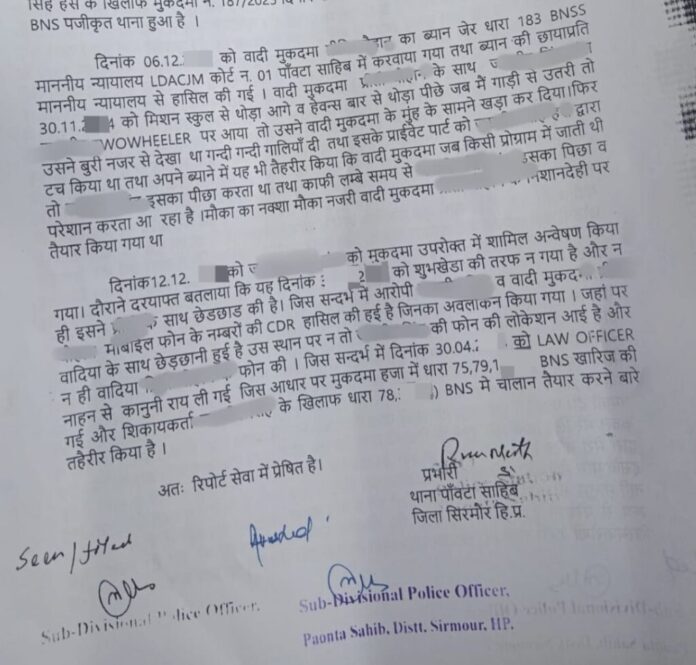 सिंह हंस के खिलाफ मुकदमा नं. 187/2025
BNS पंजीकृत थाना हुआ है ।
दिनांक 06.12. को वादी मुकदमा का ब्यान जेर धारा 183 BNSS
माननीय न्यायालय LDACJM कोर्ट न. 01 पाँवटा साहिब में करवाया गया तथा ब्यान की छायाप्रति
माननीय न्यायालय से हासिल की गई । वादी मुकदमा के साथ
30.11. 4 को मिशन स्कुल से थोड़ा आगे व हेवन्स बार से थोड़ा पीछे जब मै गाड़ी से उतरी तो
WOWHEELER पर आया तो उसने वादी मुकदमा के मुंह के सामने खड़ा कर दिया।फिर
उसने बुरी नजर से देखा था गन्दी गन्दी गालियाँ दी तथा इसके प्राईवेट पार्ट को द्वारा
टच किया था तथा अपने ब्याने में यह भी तैहरीर किया कि वादी मुकदमा जब किसी प्रोग्राम में जाती थी
तो इसका पीछा करता था तथा काफी लम्बे समय से उसका पिछा व
परेशान करता आ रहा है ।मौका का नक्शा मौका नजरी वादी मुकदमा नशानदेही पर
तैयार किया गया था
दिनांक12.12. को को मुकदमा उपरोक्त में शामिल अन्वेषण किया
गया। दौराने दरयाफ्त बतलाया कि यह दिनांक : को शुभखेडा की तरफ न गया है और न
ही इसने साथ छेडछाड की है। जिस सन्दर्भ में आरोपी व वादी मुकद
माबाईल फोन के नम्बरों की CDR हासिल की हुई है जिनका अवलाकन किया गया । जहां पर
वादिया के साथ छेड़छानी हुई है उस स्थान पर न तो की फोन की लोकेशन आई है और
न ही वादिया फोन की । जिस सन्दर्भ में दिनांक 30.04. को LAW OFFICER
नाहन से कानुनी राय ली गई जिस आधार पर मुकदमा हजा में धारा 75,79,1 BNS खारिज की
गई और शिकायकर्ता के खिलाफ धारा 78, ) BNS मे चालान तैयार करने बारे
तहैरीर किया है ।
अतः रिपोर्ट सेवा में प्रेषित है।
प्रभारी
थाना पाँवटा साहिब
जिला सिरमौर हि.प्र.
Seen/filed
Sub-Divisional Police Officer.
Sub-Divisional Police Officer,
Paonta Sahib, Distt. Sirmour, HP.